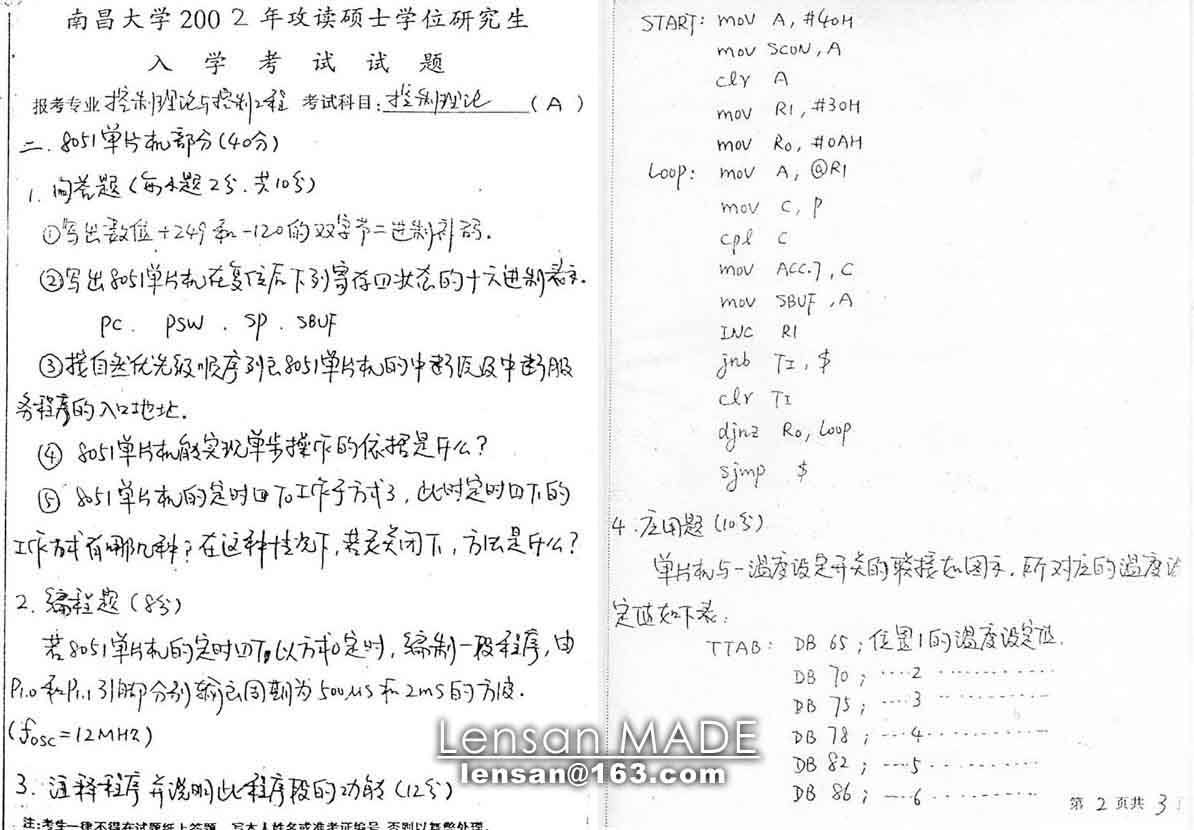 南昌大学2002年攻读硕士学位研究生
入学考试试题
报考专业 控制理论与控制工程 考试科目:控制理论 (A)
二. 8051单片机部分(40分)
1. 问答题(每小题2分,共10分)
①写出数值+249和-120的双字节二进制补码.
②写出8051单片机在复位后下列寄存器状态的十六进制表示.
PC. PSW. SP. SBUF
③按自然优先级顺序列出8051单片机的中断源及中断服
务程序的入口地址.
④ 8051单片机能实现单步操作的依据是什么?
⑤ 8051单片机的定时器T0工作于方式3,此时定时器T1的
工作方式有哪几种?在这种情况下,若要关闭T1,方法是什么?
2. 编程题(8分)
若8051单片机的定时器T0以方式0定时,编制一段程序,由
P1.0和P1.1引脚分别输出周期为500μs和2ms的方波.
(fosc=12MHz)
3. 注释程序并说明此程序段的功能(12分)
注:考生一律不得在试题纸上答题,写本人姓名或准考证编号,否则以舞弊处理.
START: mov A, #40H
mov SCON, A
clr A
mov R1, #30H
mov R0, #0AH
Loop: mov A, @R1
mov C, P
cpl C
mov ACC.7, C
mov SBUF, A
INC R1
jnb TI, $
clr TI
djnz R0, Loop
sjmp $
4. 应用题(10分)
单片机与一温度设定开关的联接如图示.所对应的温度设
定值如下表:
TTAB: DB 65; 位置1的温度设定值.
DB 70; ····2 ··············
DB 75; ····3 ··············
DB 78; ····4 ··············
DB 82; ····5 ··············
DB 86; ····6 ··············
第 2 页共 3
Lensan MADE
lensan@163.com